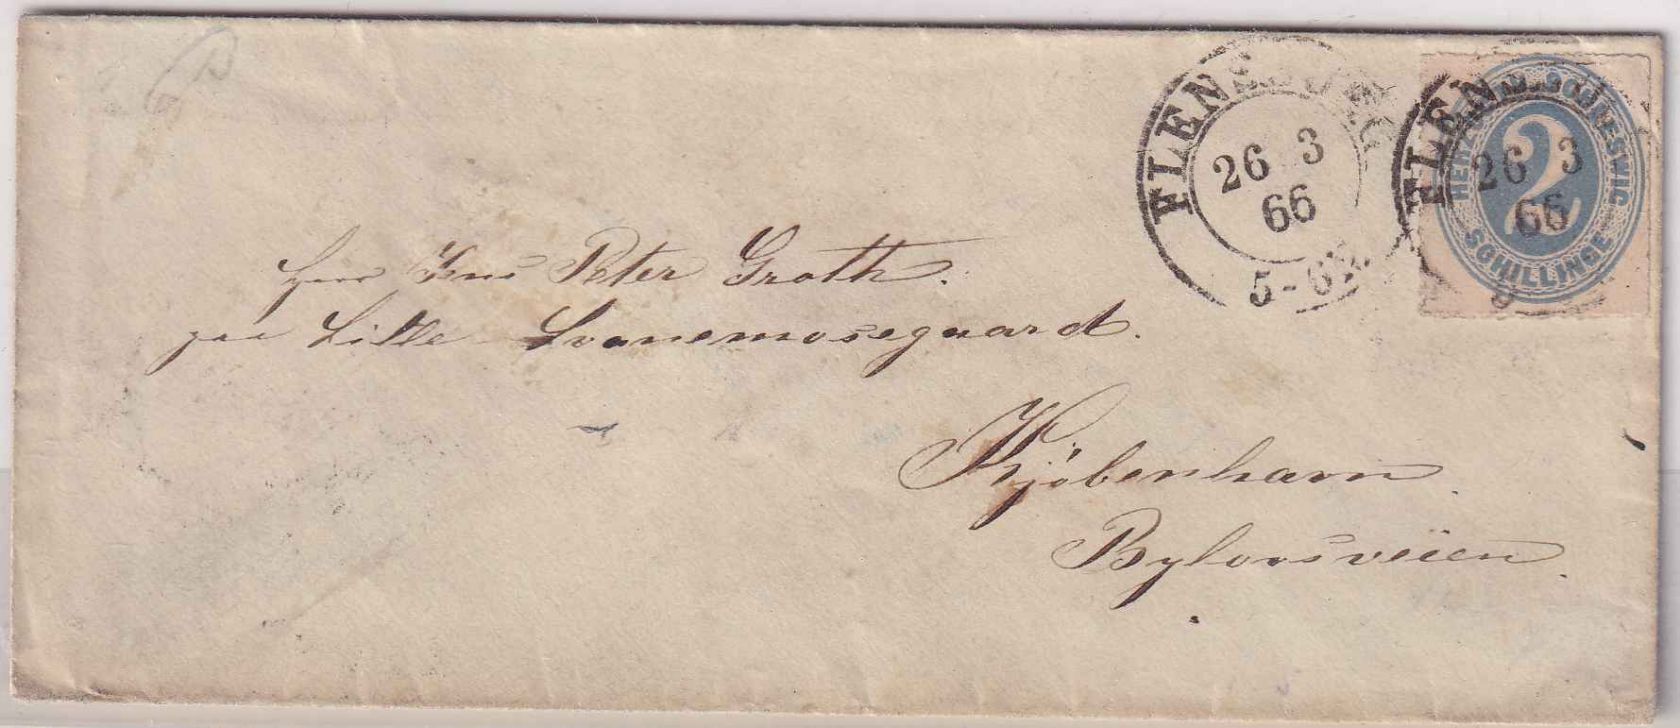 FLENSBURG
26 3
66
5-6N.
FLENS
26 3
66
HERZOGTH. SCHLESWIG
2
SCHILLINGE
Herr Jens Peter Groth.
paa Lille Svanemosegaard.
Kjöbenhavn.
Bylovsveien.